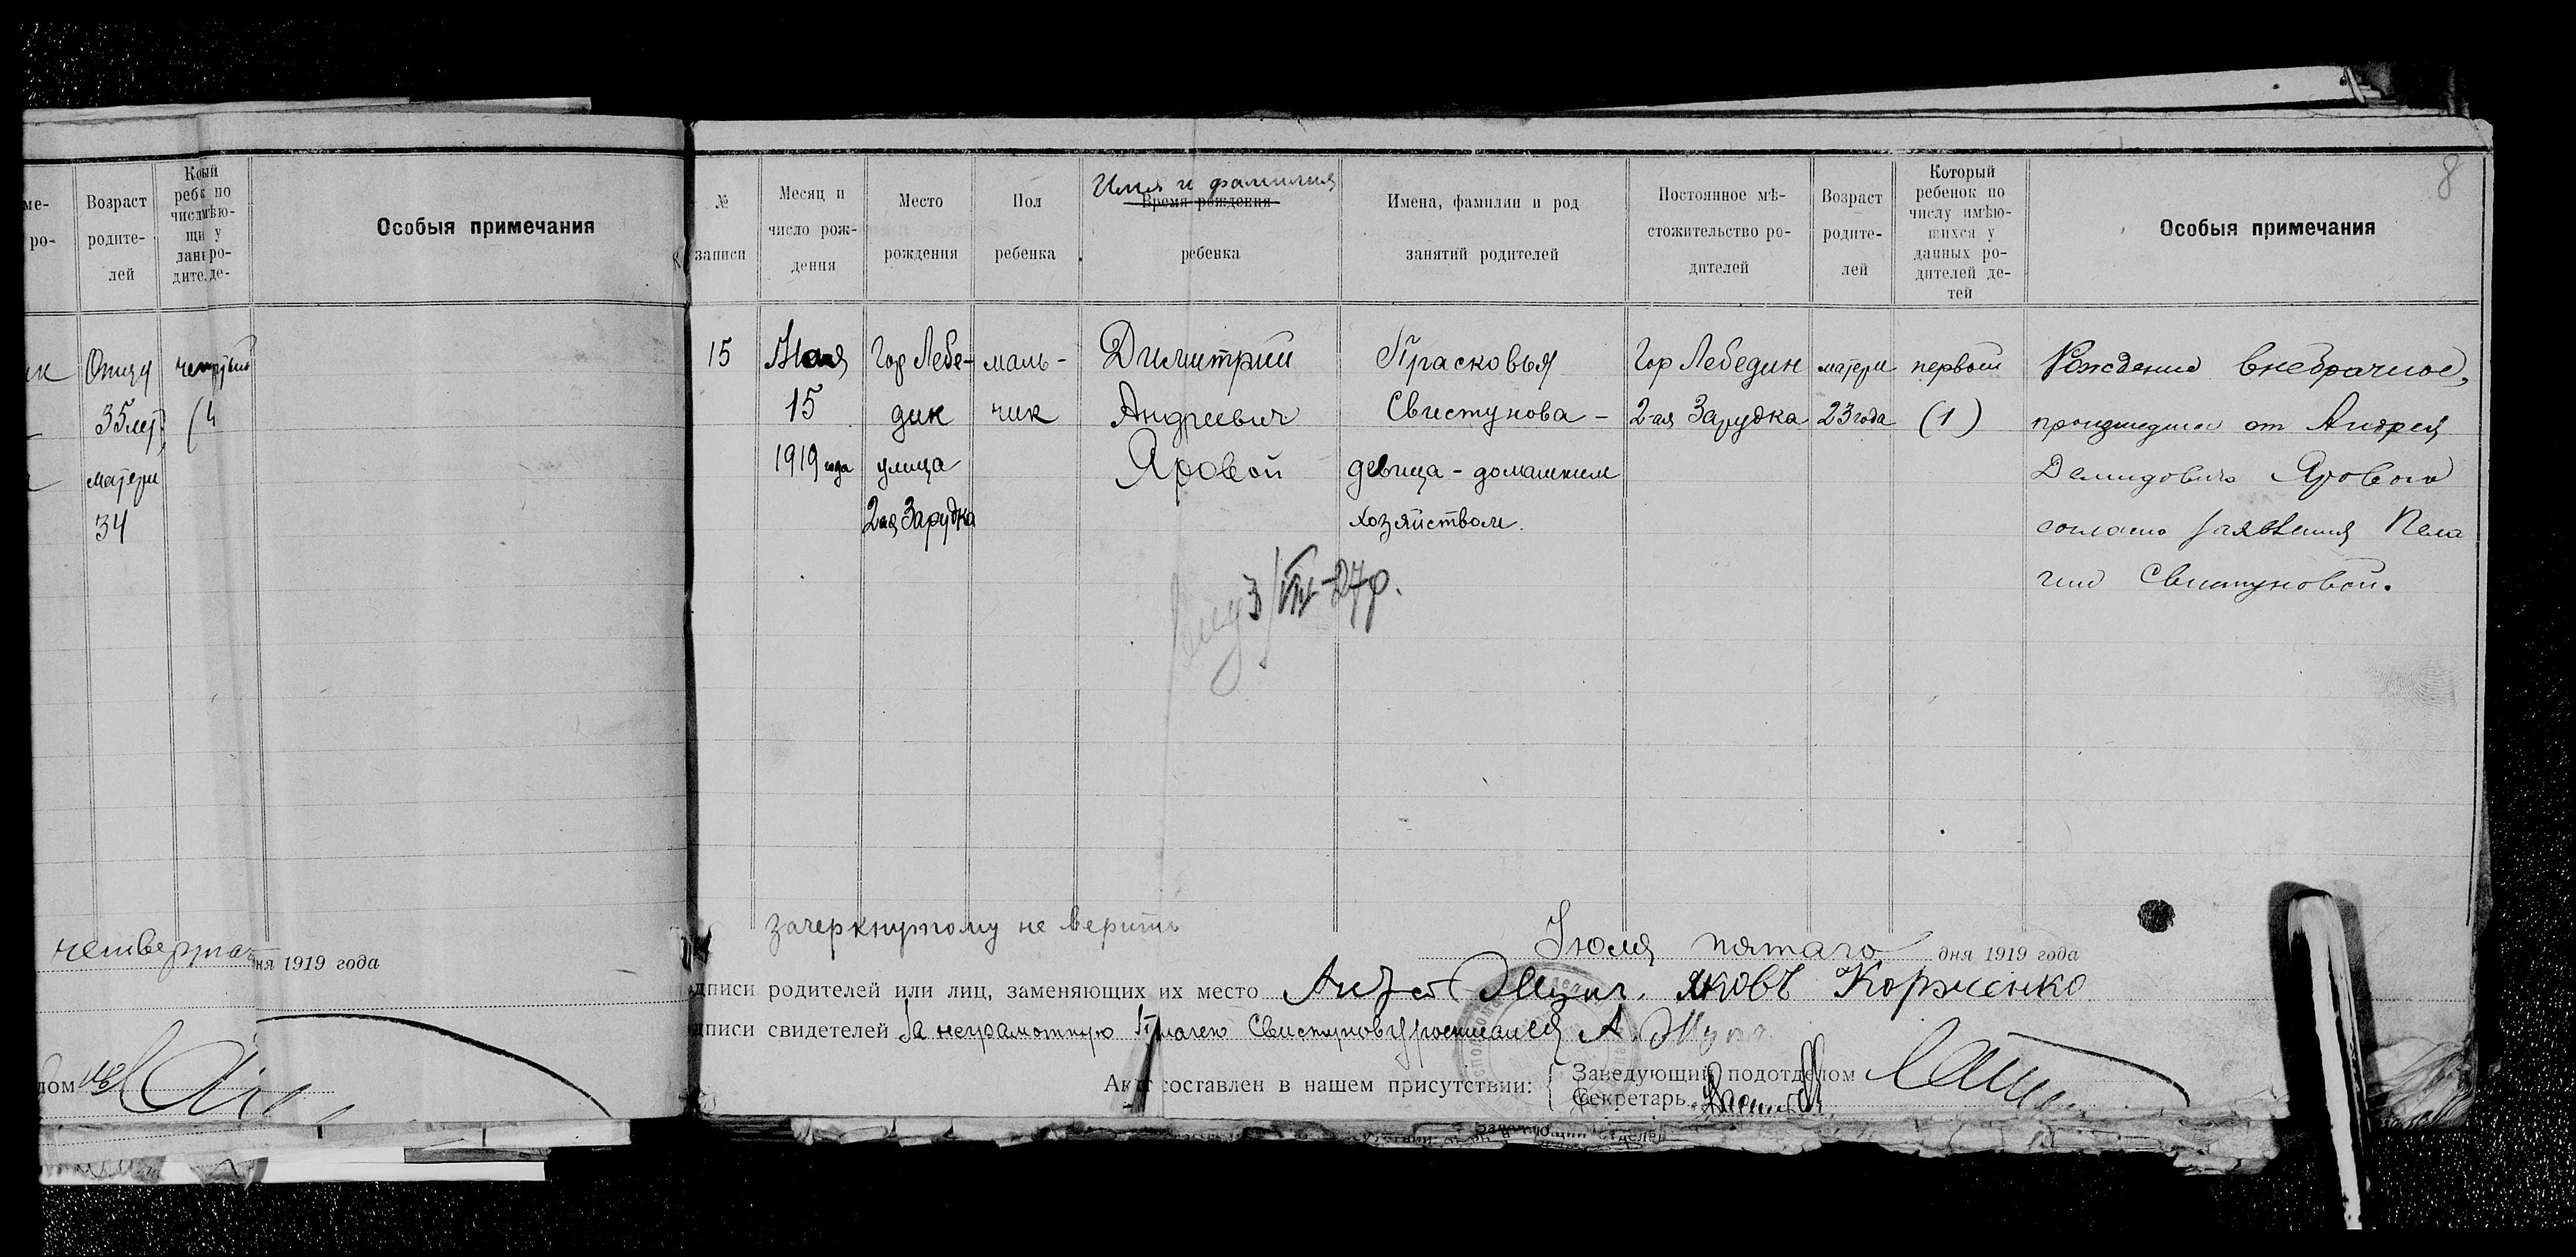 ме-
ро-
Возраст
родите-
лей
Особыя примечания
Отцу
35 лет
(4
матери
34
четвертаго
ня 1919 года
дом
8
№
записи
Месяц и
число рож-
дения
Место
рождения
Пол
ребенка
Имя и фамилия
Время рождения
ребенка
Имена, фамилии и род
занятий родителей
Постоянное мѣ-
стожительство ро-
дителей
Возраст
родите-
лей
Который
ребенок по
числу имѣю-
щихся у
данных ро-
дителей де-
тей
Особыя примечания
15
Мая
15
1919 года
Гор Лебе-
дин
улица
2ая Зарудка
маль-
чик
Димитрий
Андреевич
Яровой
Прасковья
Свистунова -
девица - домашним
хозяйством.
Гор Лебедин
2-ая Зарудка
матери
23 года
первый
(1)
Рождение внебрачное,
происшедшее от Андрея
ДемидовичаЯрового
согласно заявления Пела
гии Свистуновой.
3/VII-27р.
зачеркнутому не верить
Июля пятаго дня 1919 года
дписи родителей или лиц, заменяющих их место Яковъ Корженко
дписи свидетелей За неграмотную Свистунову росписался А.
Акт составлен в нашем присутствии:
Заведующий подотделом
Секретарь